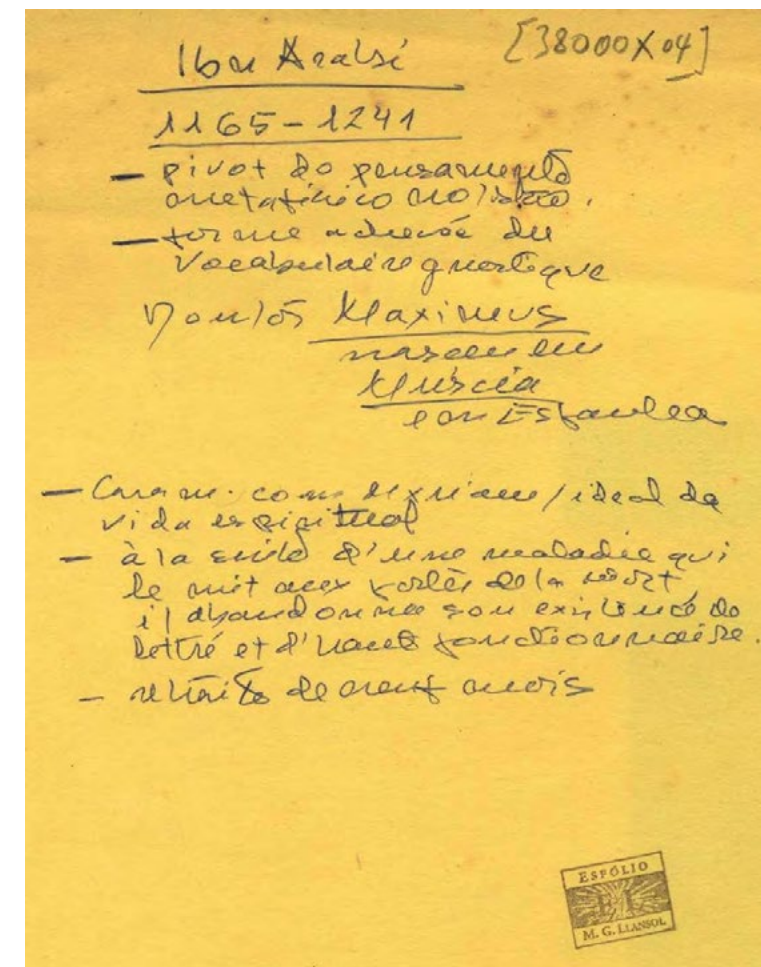 [38000X04]
Ibn Arabi
1165-1241
- pivot do pensamento
metafísico no Islão.
- forme achevée du
vocabulaire gnostique
Doutor Maximus
nasceu em
Múrcia
em Espanha
- Casa-se com Maríam/ideal da
vida espiritual
- à la suite d'une maladie qui
le mit aux portes de la mort,
il abandonne son existence de
lettré et d'haut fonctionnaire.
- retraite de neuf mois
ESPÓLIO
M. G. LLANSOL